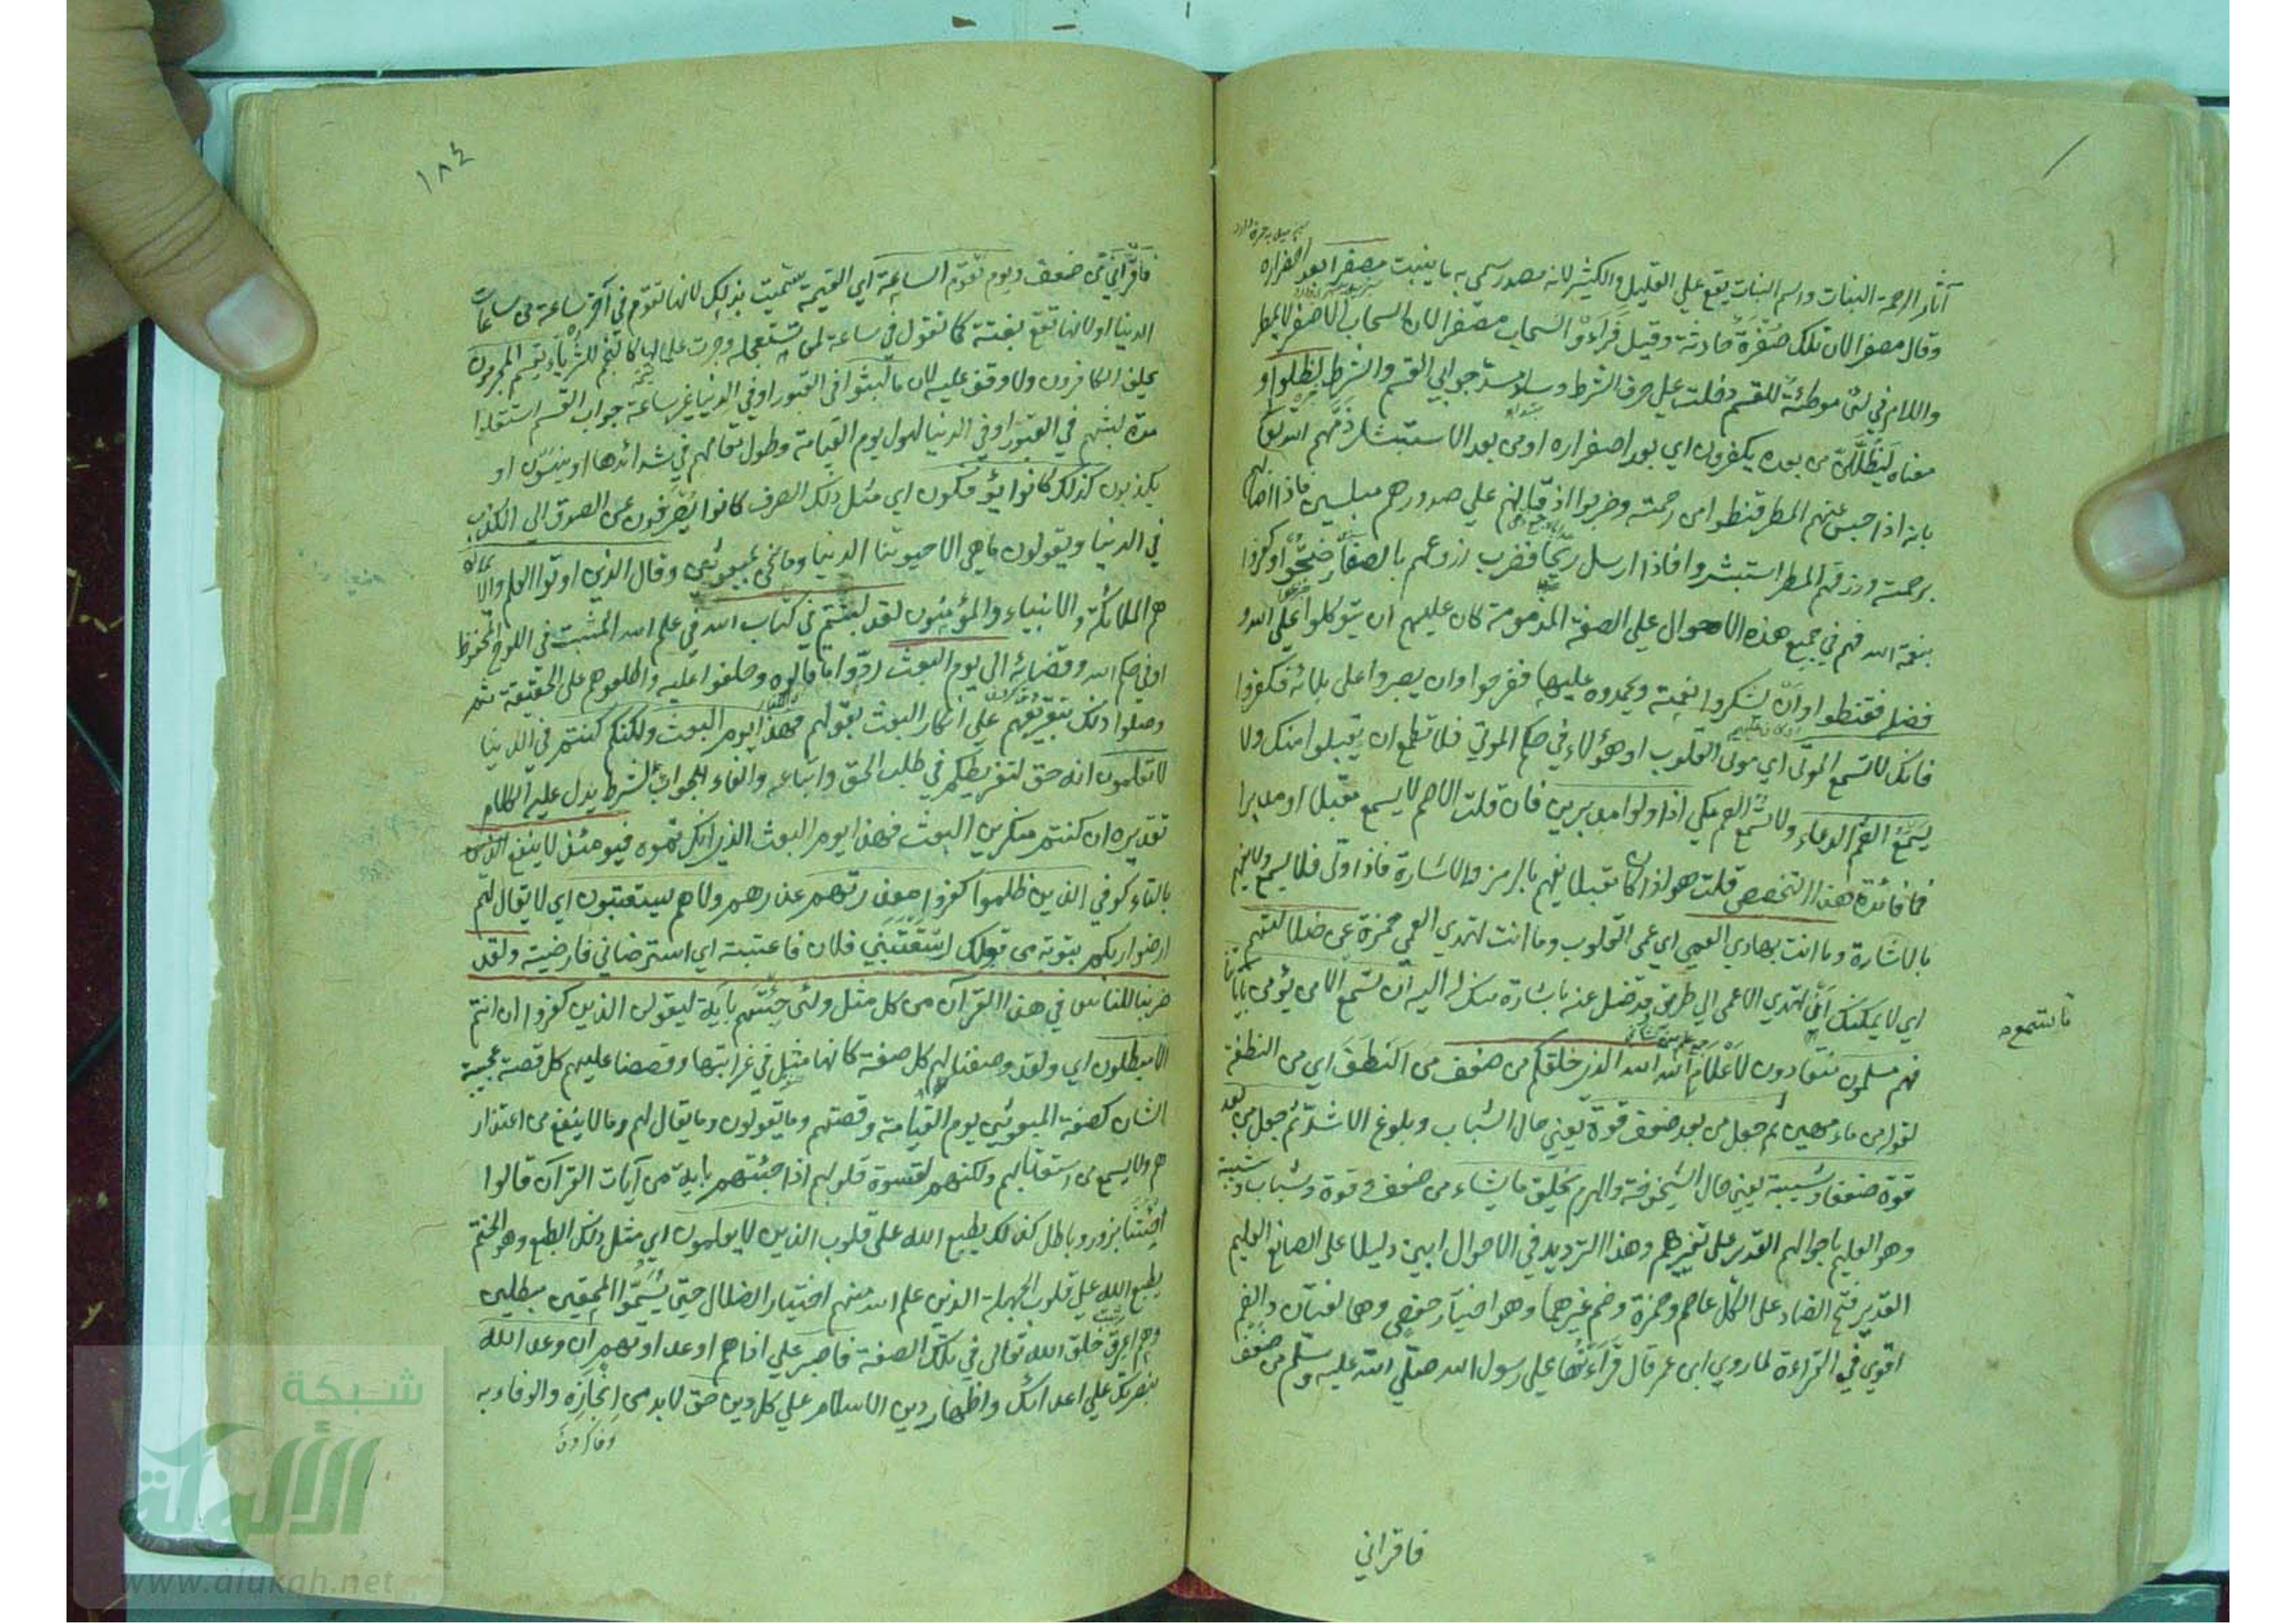 آثار الرحمة النبات واسم النبات يقع علي القليل والكثير لانه مصدر سمي به ما ينبت مصفرا بعد اخضراره
وقال مصفرا لان تلك صفرة حادثة وقيل فرأوا السحاب مصفرا لان السحاب الاصفر لا يمطر
واللام في لئن موطئة للقسم دخلت علي حرف الشرط وسد مسد جوابي القسم والشرط لظلوا و
معناه ليظللن من بعده يكفرون اي بعد اصفراره او من بعد الاستبشار ذمهم الله تعا
بانه اذا حبس عنهم المطر قنطوا من رحمته وضربوا اذقانهم علي صدورهم مبلسين فاذا اصابهم
برحمته ورزقهم المطر استبشروا فاذا ارسل ريحا فضرب زروعهم بالصفار ضجوا وكفروا
بنعمة الله فهم في جميع هذه الاحوال علي الصفة المذمومة كان عليهم ان يتوكلوا علي الله و
فضله فقنطوا وان يشكروا نعمته ويحمدوه عليها ففرحوا وان يصبروا على بلائه فكفروا
فانك لا تسمع الموتى اي موتى القلوب او هؤلاء في حكم الموتي فلا تطمع ان يقبلوا منك ولا
يسمع الصم الدعاء ولا تسمع الصم مكي اذا ولوا مدبرين فان قلت الاصم لا يسمع مقبلا او مدبرا
فما فائدة هذا التخصيص قلت هو اذا كان مقبلا يفهم بالرمز والاشارة فاذا ولى فلا يسمع ولا يفهم
بالاشارة وما انت بهادي العمي اي عمى القلوب وما انت تهدي العمي حمزة عن ضلالتهم
اي لا يمكنك ان تهدي الاعمى الي طريق قد ضل عنه باشارة منك له اليه ان تسمع الا من يؤمن باياتنا
فهم مسلمون منقادون لاعلام الله الله الذي خلقكم من ضعف من النطف اي من النطفة
لقوله من ماء مهين ثم جعل من بعد ضعف قوة يعني حال الشباب وبلوغ الاشد ثم جعل من بعد
قوة ضعفا وشيبة يعني حال الشيخوخة والهرم يخلق ما يشاء من ضعف وقوة وشباب وشيبة
وهو العليم باحوالهم القدير على تغييرهم وهذا الترديد في الاحوال ابين دليل على الصانع العليم
القدير فتح الضاد على الكل عاصم وحمزة وضم غيرهما وهو اختيار حفص وهما لغتان والضم
اقوي في القراءة لما روي ابن عمر قال قرأتها علي رسول الله صلي الله عليه وسلم من ضعف
تاستمعوه
فاقراني
١٨٤
فاقرأني من ضعف ويوم تقوم الساعة اي القيمة سميت بذلك لانها تقوم في آخر ساعة من ساعات
الدنيا او لانها تقع بغتة كما تقول في ساعة لمن تستعجله وجرت علما لها كالنجم للثريا يقسم المجرمون
يحلف الكافرون ولا وقف عليه لان ما لبثوا في القبور او في الدنيا غير ساعة جواب القسم استقلوا
مدة لبثهم في القبور او في الدنيا لهول يوم القيامة وطول مقامهم في شدائدها او ينسون او
يكذبون كذلك كانوا يؤفكون اي مثل ذلك الصرف كانوا يصرفون عن الصدق الى الكذب
في الدنيا ويقولون ما هي الا حيوتنا الدنيا وما نحن بمبعوثين وقال الذين اوتوا العلم والايمان
هم الملائكة والانبياء والمؤمنون لقد لبثتم في كتاب الله في علم الله المثبت في اللوح المحفوظ
او في حكم الله وقضائه الى يوم البعث ردوا ما قالوه وحلفوا عليه واطلعوهم على الحقيقة ثم
وصلوا ذلك بتقريعهم علي انكار البعث بقولهم فهذا يوم البعث ولكنكم كنتم في الدنيا
لا تعلمون انه حق لتفريطكم في طلب الحق واتباعه والفاء لجواب شرط يدل عليه الكلام
تقديره ان كنتم منكرين البعث فهذا يوم البعث الذي انكرتموه فيومئذ لا ينفع الذين
بالتاء كوفي الذين ظلموا كفروا معذرتهم عذرهم ولا هم يستعتبون اي لا يقال لهم
ارضوا ربكم بتوبة من قولك استعتبني فلان فاعتبته اي استرضاني فارضيته ولقد
ضربنا للناس في هذا القرآن من كل مثل ولئن جئتهم بآية ليقولن الذين كفروا ان انتم
الا مبطلون اي ولقد وصفنا لهم كل صفة كانها مثل في غرابتها وقصصنا عليهم كل قصة عجيبة
الشان كصفة المبعوثين يوم القيامة وقصتهم وما يقولون وما يقال لهم وما لا ينفع من اعتذار
هم ولا يسمع من استعتابهم ولكنهم لقسوة قلوبهم اذا جئتهم باية من آيات القرآن قالوا
اجئتنا بزور وباطل كذلك يطبع الله على قلوب الذين لا يعلمون اي مثل ذلك الطبع وهو الختم
يطبع الله علي قلوب الجهلة الذين علم الله منهم اختيار الضلال حتى يسموا المحقين مبطلين
وهم اعرق خلق الله تعالى في تلك الصفة فاصبر علي اذاهم او عداوتهم ان وعد الله
بنصرتك علي اعدائك واظهار دين الاسلام علي كل دين حق لا بد من انجازه والوفاء به
شبكة
الألوكة
www.alukah.net